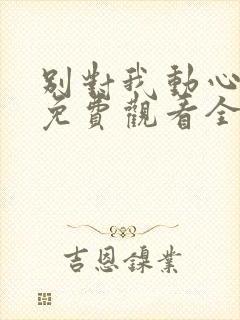 別對我動心
免費觀看全
吉恩鎳業